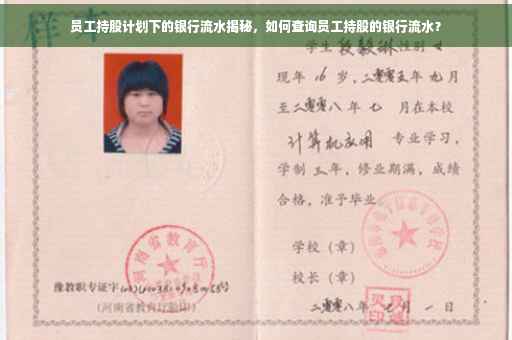 员工持股计划下的银行流水揭秘，如何查询员工持股的银行流水？
样本
学生 段毅琳 性别 女
现年 16 岁，二零零五年 九月
至二零零八年 七 月在本校
计算机应用 专业学习，
学制 三年，修业期满，成绩
合格，准予毕业
学校（章）
校长（章）
二零零八年 月 一 日
河南省教育厅
豫教职专证字
（河南省教育厅验印）